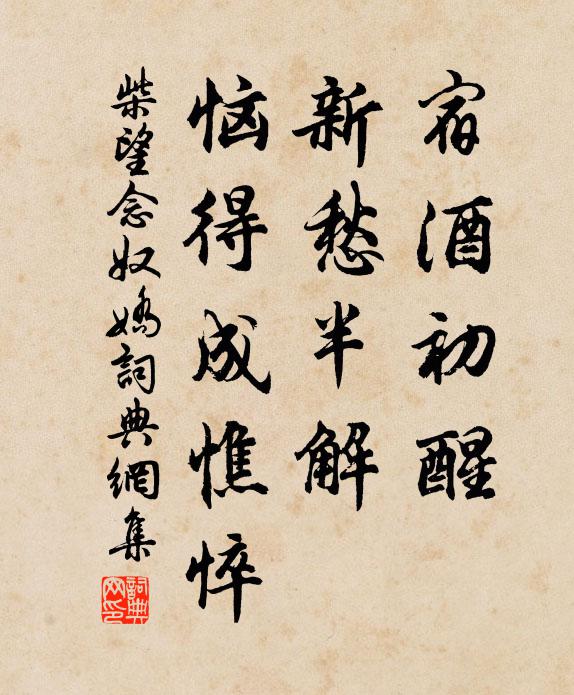 宿酒初醒
新愁半解
恼得成憔悴
柴望念奴嬌詞典網集
詞典網印